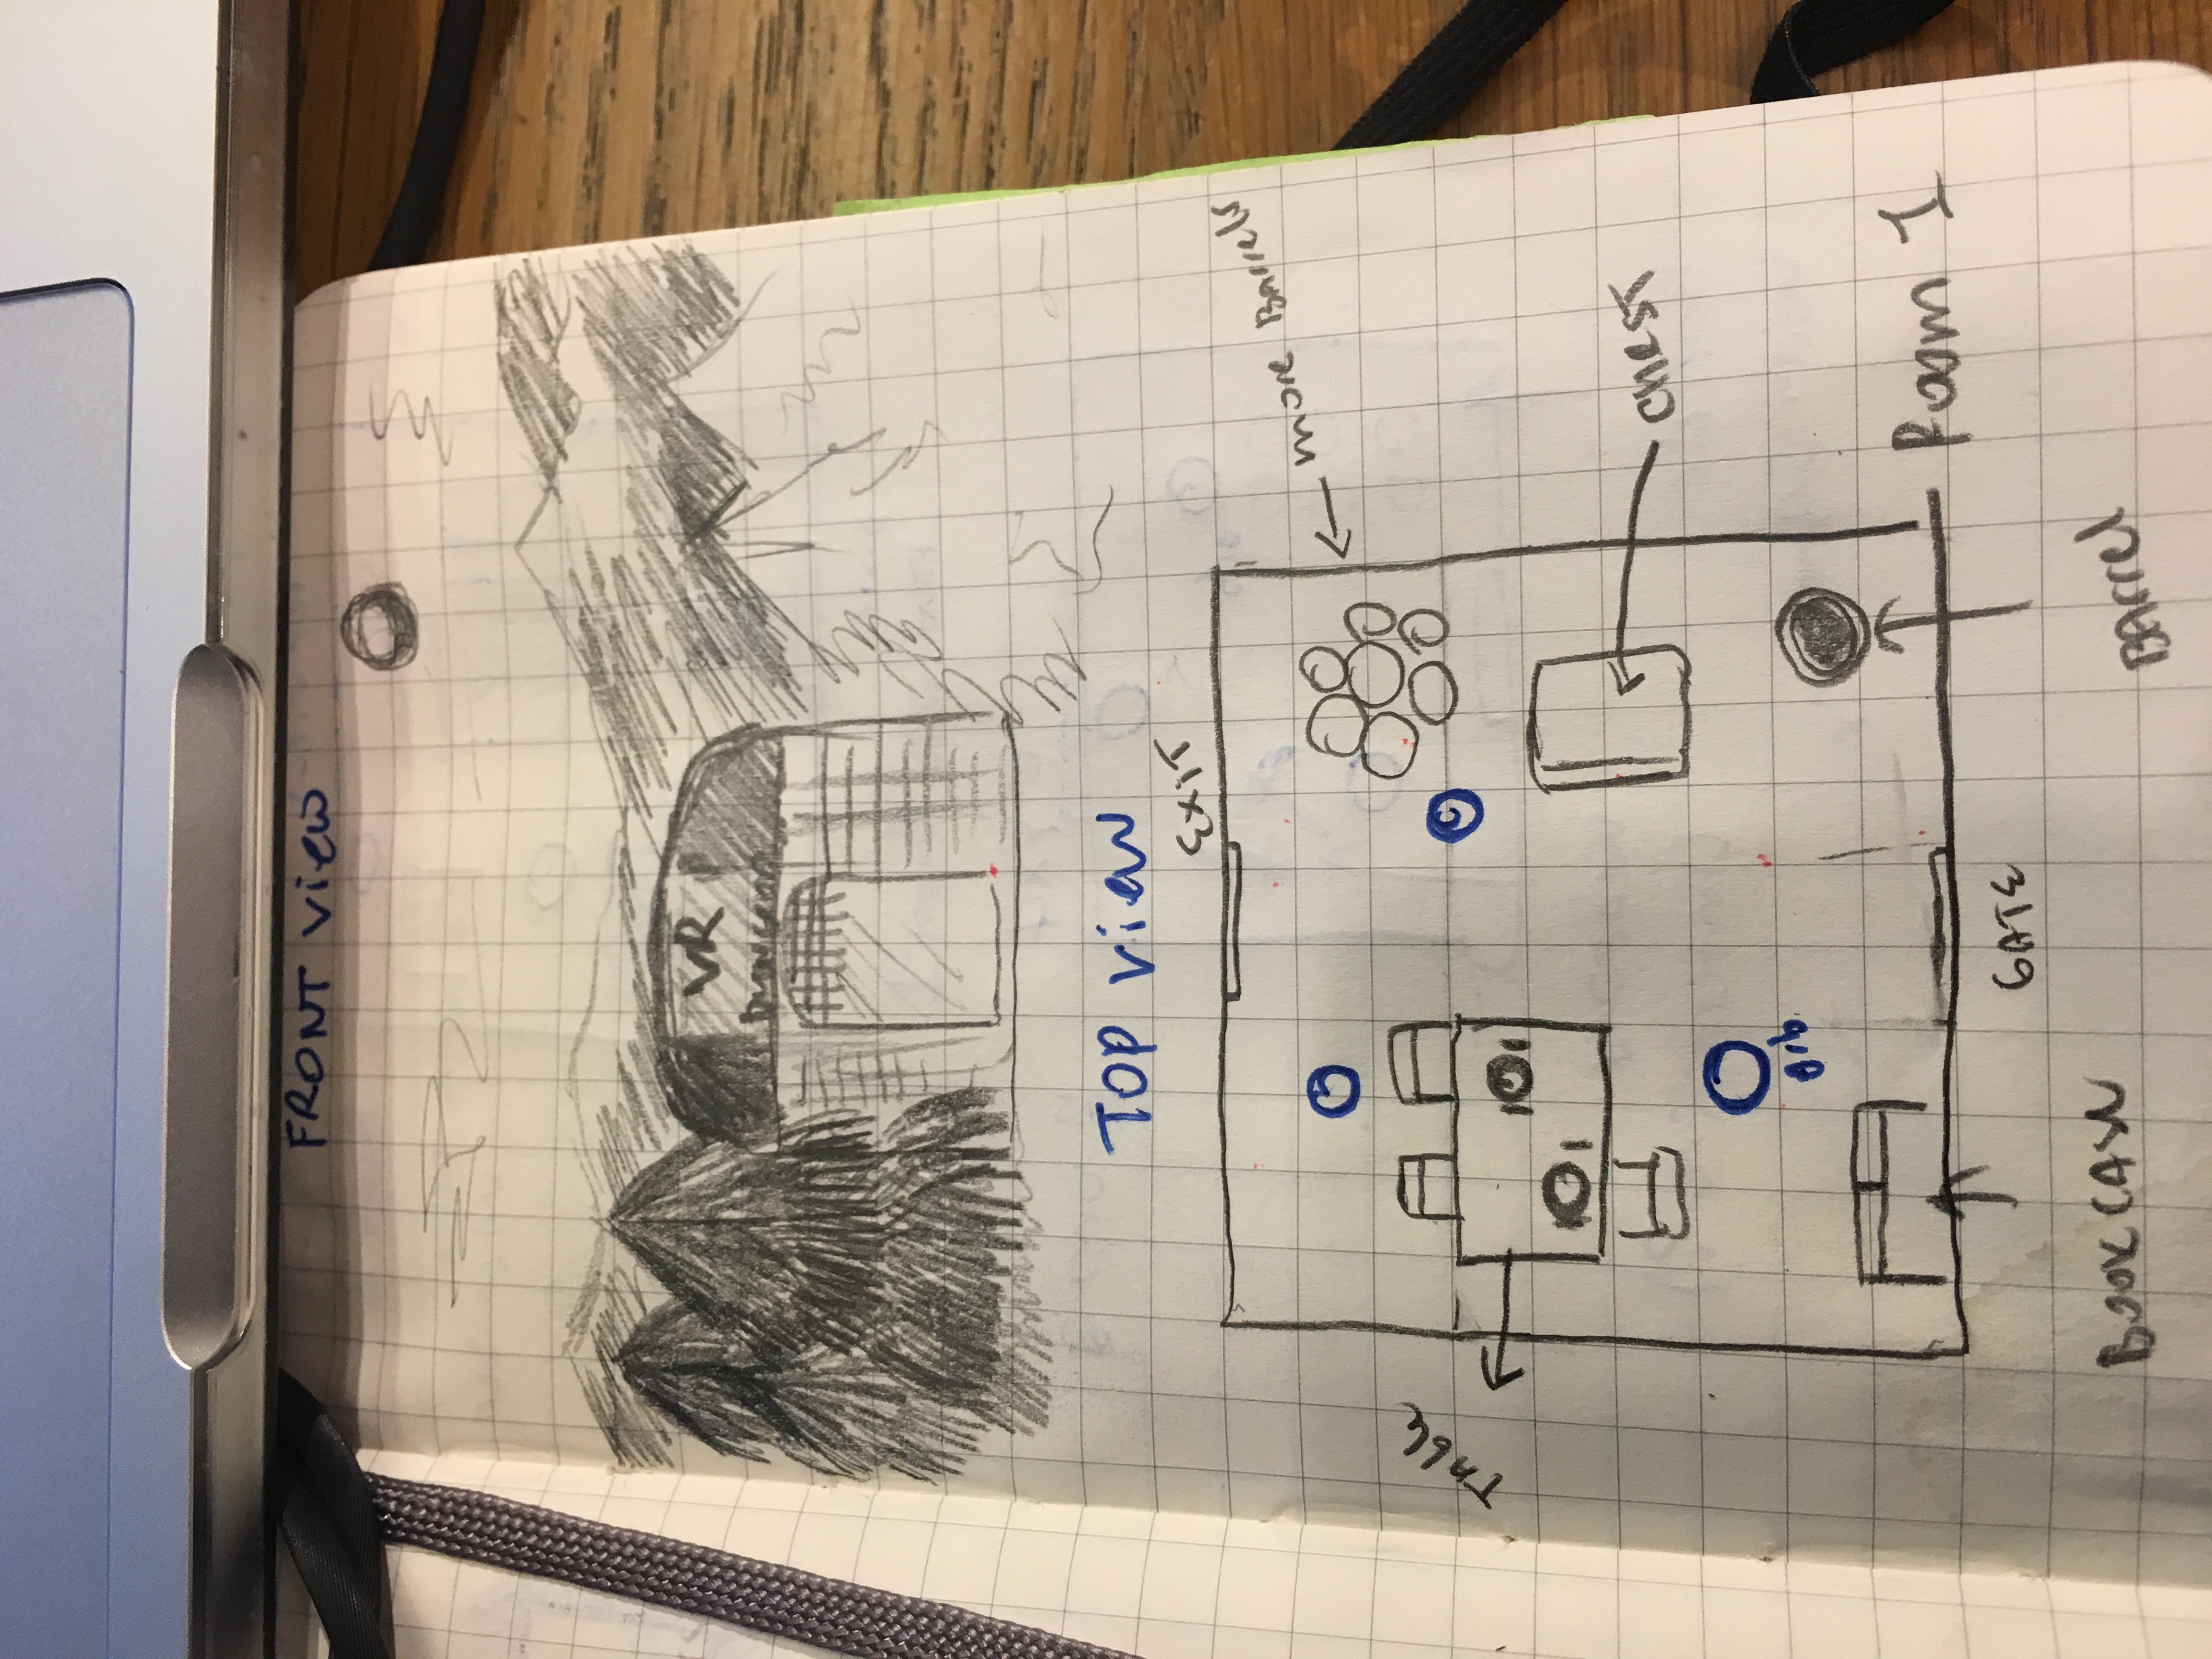 FRONT view
VR
Dungeon
TOP view
EXIT
more BArrels
TAble
CHEST
Room 1
GATE
BOOKCASE
BArrel